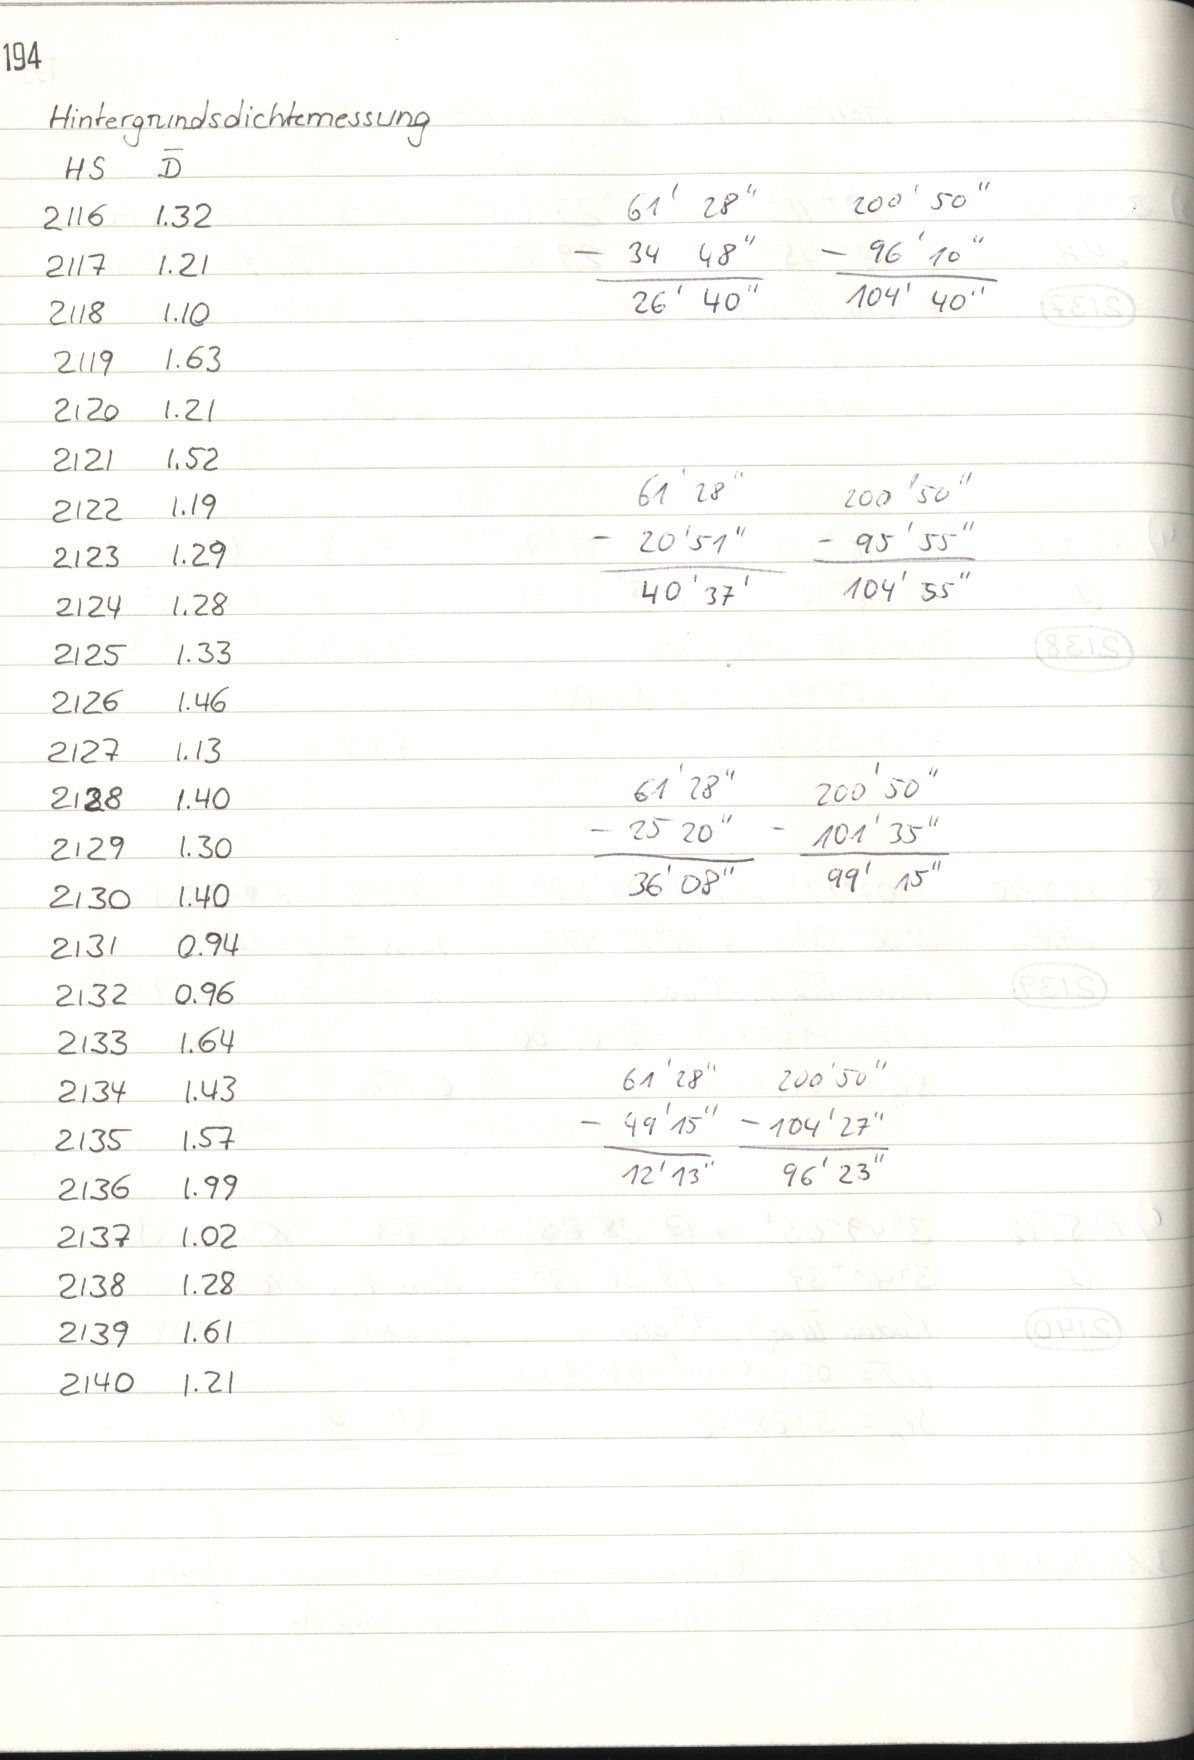 194
Hintergrundsdichtemessung
HS D̅
2116 1.32
2117 1.21
2118 1.10
2119 1.63
2120 1.21
2121 1.52
2122 1.19
2123 1.29
2124 1.28
2125 1.33
2126 1.46
2127 1.13
2128 1.40
2129 1.30
2130 1.40
2131 0.94
2132 0.96
2133 1.64
2134 1.43
2135 1.57
2136 1.99
2137 1.02
2138 1.28
2139 1.61
2140 1.21
61' 28" 200' 50"
– 34 48" – 96' 10"
26' 40" 104' 40"
61' 28" 200' 50"
– 20' 51" – 95' 55"
40' 37' 104' 55"
61' 28" 200' 50"
– 25 20" – 101' 35"
36' 08" 99' 15"
61' 28" 200' 50"
– 49' 15" – 104' 27"
12' 13" 96' 23"